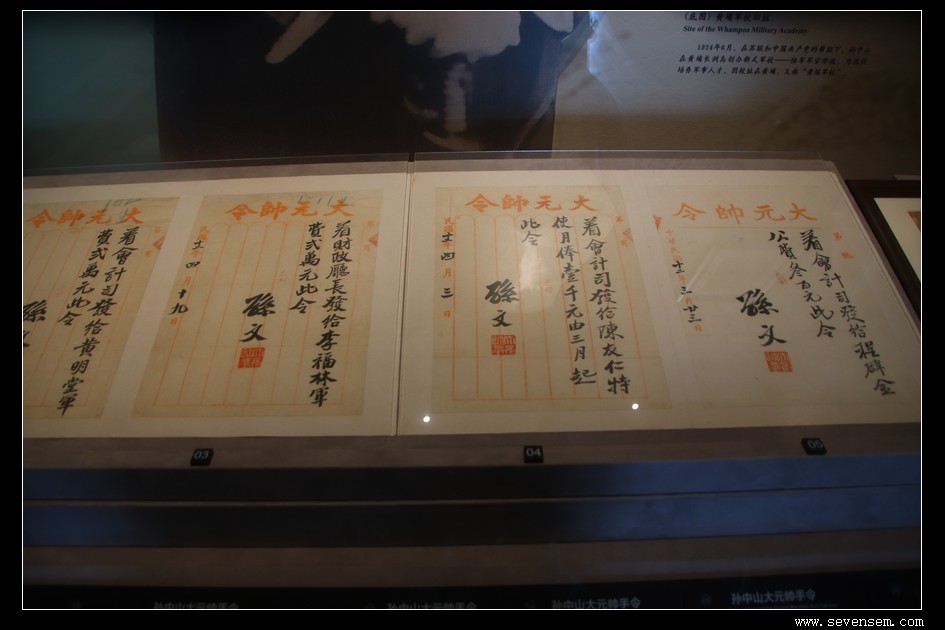 (底图)黄埔军校旧址
Site of the Whampoa Military Academy
1924年6月，在苏联和中国共产党的帮助下，孙中山
在黄埔长洲岛创办新式军校——陆军军官学校，
培养军事人才，因校址在黄埔，又称“黄埔军校”
大元帥令
着會計司發給黃明堂軍
費弍萬元此令
孫文
大元帥令
着財政廳長發給李福林軍
費弍萬元此令
孫文
四月十九日
大元帥令
着會計司發給陳友仁特
使月俸壹千元由三月起
此令
孫文
四月三日
大元帥令
着會計司發給程碑金
公費叁百元此令
孫文
三月廿三日
03
04
05
孙中山大元帅手令
孙中山大元帅手令
孙中山大元帅手令
孙中山大元帅手令
www.sevensem.com